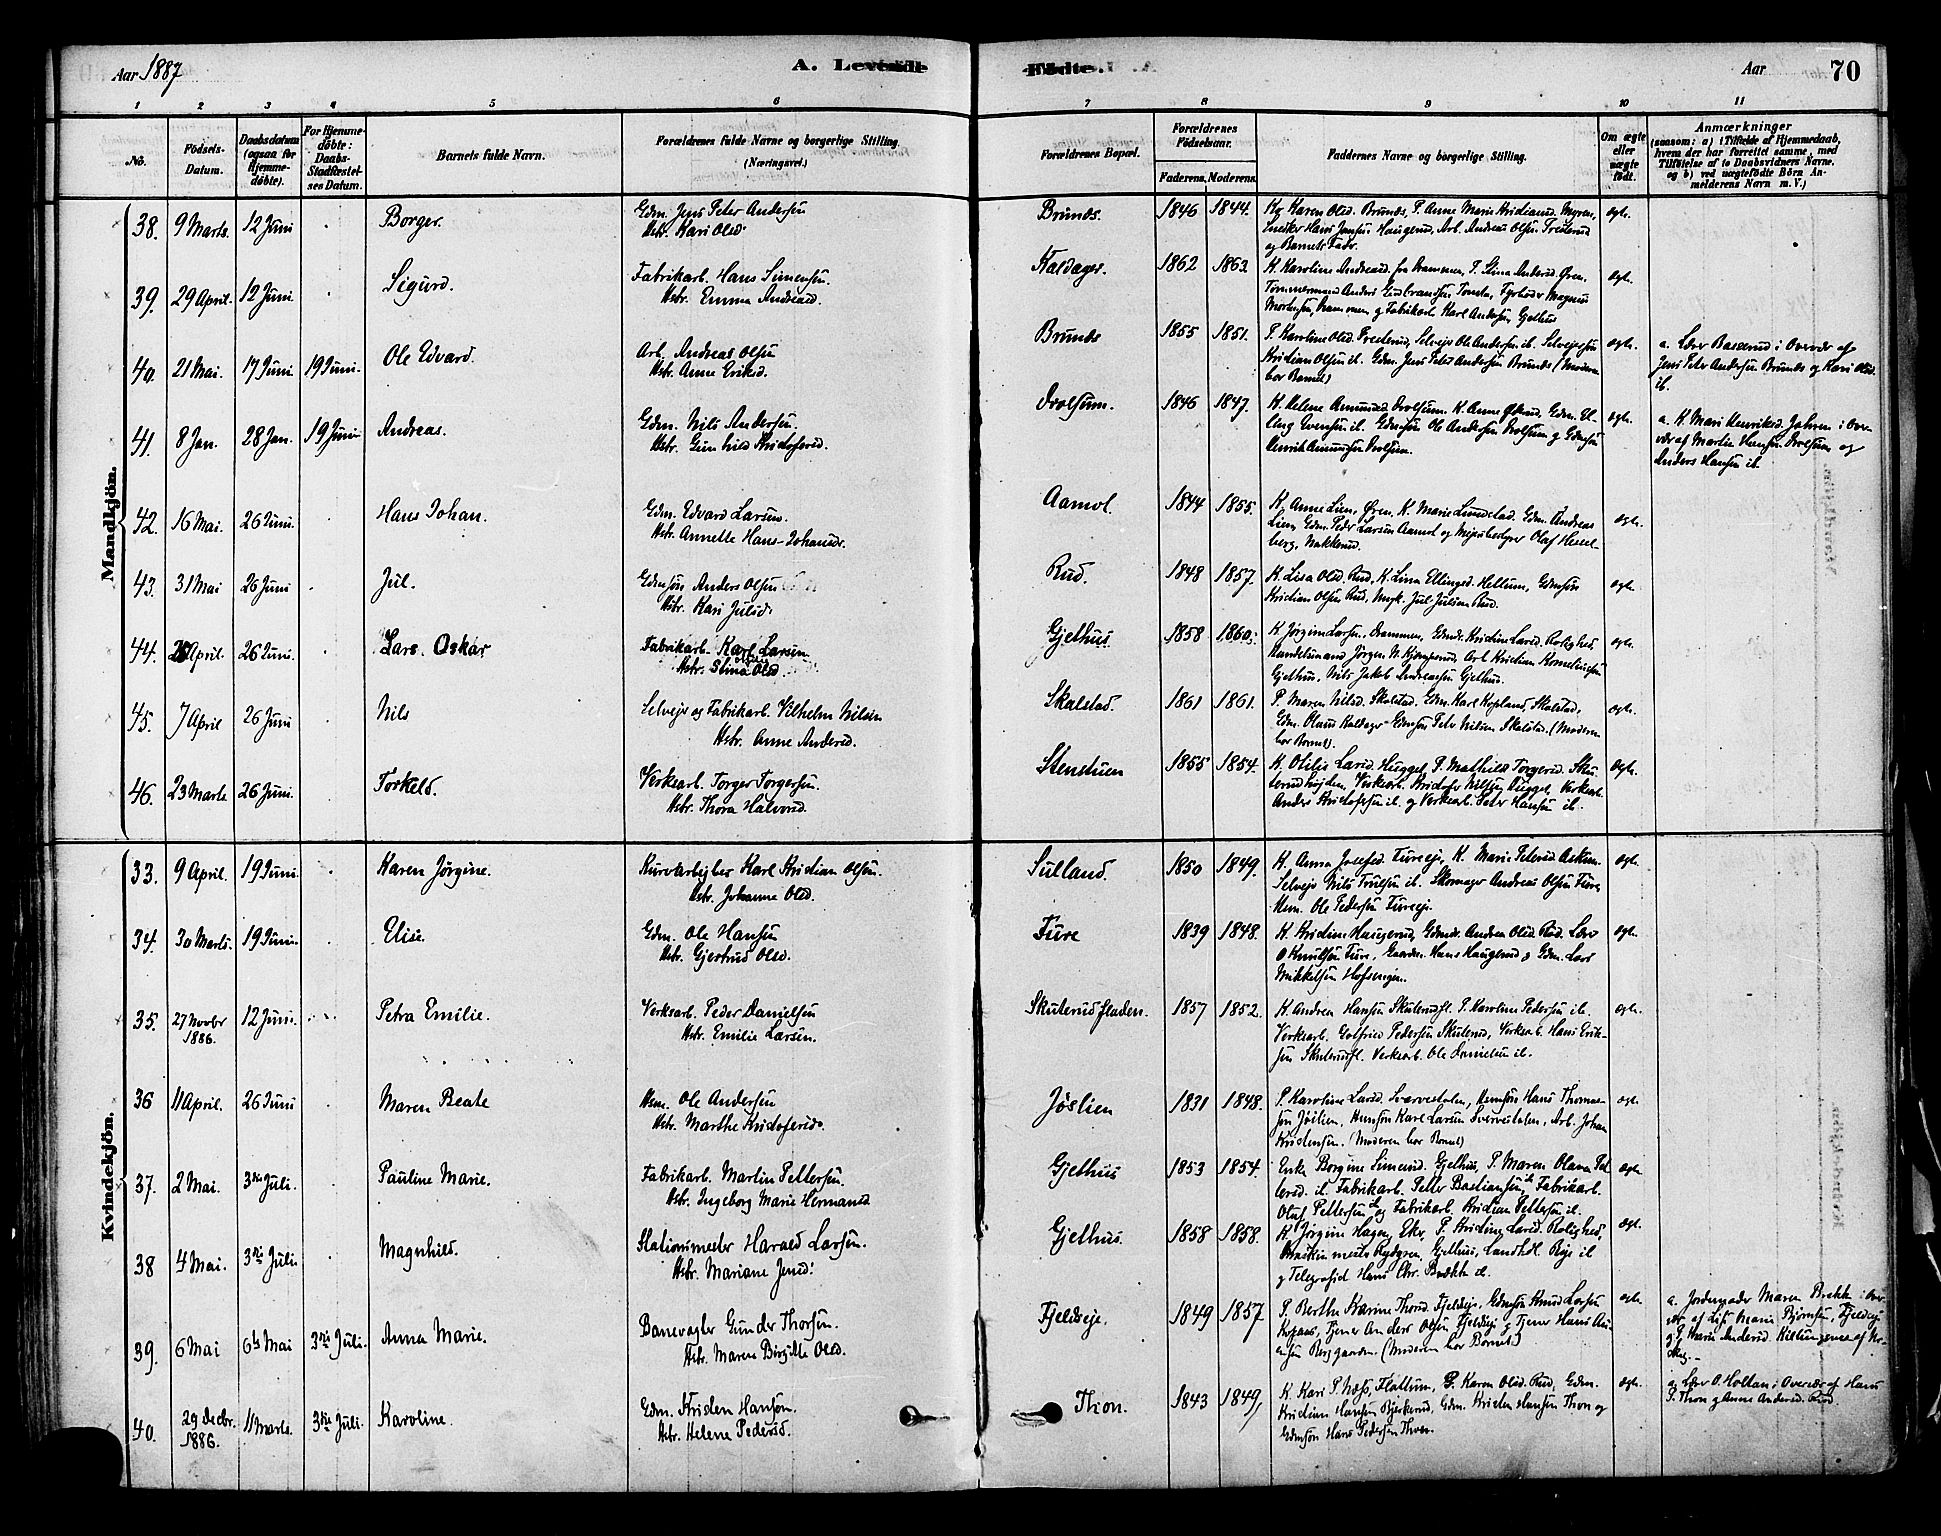 Aar 1887
A. Levende
Fødte.
Aar
70
1 2 3 4 5 6 7 8 9 10 11
No.
Fødsels-Datum.
Daabsdatum (ogsaa for Hjemmedøbte).
For Hjemmedøbte: Daabs-Stadfæstelses Datum.
Barnets fulde Navn.
Forældrenes fulde Navne og borgerlige Stilling. (Næringsvei.)
Forældrenes Bopæl.
Forældrenes Fødselsaar.
Faderens. Moderens.
Faddernes Navne og borgerlige Stilling.
Om ægte eller uægte født.
Anmærkninger
(saasom: a) i Tilfælde af Hjemmedaab, hvem der har forrettet samme, med Tilføielse af to Daabsvidners Navne, og b) ved uægtefødte Børn Anmelderens Navn m. V.)
Mandkjön.
38. 9 Marts. 12 Juni Borger. Gdm. Jens Peter Andersen
Hstr. Kari Olsd. Brunes. 1846 1844. Anne Marie
Hans Jensen Haugerud, Arb. Andreas Olsen
og Barnets Fader. ægte.
39. 29 April. 12 Juni. Sigurd. Fabrikarb. Hans Simensen
Hstr. Emma Andreasd. Kaldager. 1862 1863. K. Karoline Andreasd. fra Drammen, P. Stina Andersd. Øren,
Tømmermand Anders Gulbrandsen
Mortensen, Drammen, og Fabrikarb. Karl Andersen, Gjethus ægte.
40. 21 Mai. 17 Juni. 19 Juni. Ole Edvard. Arb. Andreas Olsen
Hstr. Anne Eriksd. Brunes 1855 1851. P. Karoline Olsd. Selveier Ole Andersen ib.
Kristian Olsen ib. Gdm. Jens Peter Andersen Brunes (Moderen
bar Barnet) ægte. a. Lærer Basserud i Overvær af
Jens Peter Andersen Brunes og Kari Olsd.
ib.
41. 8 Jan. 28 Jan. 19 Juni. Andreas. Gdm. Nils Andersen.
Hstr. Gunhild Kristofersd. Drolsum. 1846 1847. K. Helene Amundsd. Drolsum. K. Anne Gdm.
Svensen ib. Ole Andersen Drolsum og Gdmsøn
Henrik Amundsen Drolsum. ægte. a. K. Mari Henriksd. Jahren i Over-
vær af Martin Hansen Drolsum og
Anders Hansen ib.
42. 16 Mai. 26 Juni. Hans Johan. Gdm. Edvard Larsen.
Hstr. Annette Hans-Johansdr. Aamot. 1844 1855. K. Anne Lien, Øren, K. Marie Gdm. Andreas
Lien, Gdm. Peder Larsen Aamot og Meieribestyrer Olaf Hessel-
berg, Nakkerud. ægte.
43. 31 Mai 26 Juni Jul. Gdmsøn Anders Olsen
Hstr. Kari Julsd. Rud. 1848 1857. K. Lisa Olsd. Rud, K. Lina Ellingsd. Hellum, Gdmsøn
Kristian Olsen Rud, Ungk. Jul Julsen Rud. ægte.
44. April. 26 Juni. Lars Oskar Fabrikarb. Karl Larsen
Hstr. Stina Olsd. Gjethus 1858 1860. K. Jørgine Larsen, Drammen, Kristine Larsd. Rolighed,
Handelsmand Jørgen N. Arb. Kristian Korneliussen
Gjethus, Nils Jakob Andreassen Gjethus. ægte.
45. 7 April 26 Juni Nils Selveier og Fabrikarb. Vilhelm Nilsen
Hstr. Anne Andersd. Skalstad. 1861 1861. P. Maren Nilsd. Skalstad, Gdm. Karl Kopland, Skalstad,
Gdm. Olaus Kaldager Gdmsøn Peter Nilsen Skalstad. (Moderen
bar Barnet). ægte.
46. 23 Marts 26 Juni. Torkeld. Verksarb. Torger Torgersen.
Hstr. Thora Halvorsd. Stenstuen 1855 1854. K. Otilie Larsd. Hugget, P. Mathilde Torgersd. Sku-
terudhøgden, Verksarb. Kristofer Nilsen Hugget, Verksarb.
Anders Kristofersen ib. og Verksarb. Peter Hansen ib. ægte.
Kvindekjön.
33. 9 April. 19 Juni. Karen Jørgine. Kurvarbejder Karl Kristian Olsen.
Hstr. Johanne Olsd. Sulland. 1850 1849. K. Anna Josefsd. Fureeje, K. Marie Petersd. Askim.
Selveier Nils Truelsen ib. Skomager Andreas Olsen Fure,
Hsm. Ole Pedersen Fureeje. ægte.
34. 30 Marts. 19 Juni. Elise. Gdm. Ole Hansen
Hstr. Gjertrud Olsd. Fure 1839 1848. K. Kristine Haugerud, Andrea Olsd. Rud. Lærer
O Knudsen Fure, Gaardm. Hans Haugerud og Gdm. Lars
Mikkelsen Hofsengen. ægte.
35. 27 Novbr 1886. 12 Juni. Petra Emilie. Verksarb. Peder Danielsen
Hstr. Emilie Larsen. Skuterudfladen. 1857 1852. K. Andrea Hansen Skuterudfl. P. Karoline Pedersen ib.
Verksarb. Gotfried Pedersen Skuterud, Verksarb. Hans Erik-
sen Skuterudfl. Verksarb. Ole Danielsen ib. ægte.
36 11 April. 26 Juni Maren Beate Hsm. Ole Andersen
Hstr. Marthe Kristofersd. Jøslien 1831 1848. P. Karoline Larsd. Hsmsøn Hans Thomas-
sen Jøslien, Hsmsøn Karl Larsen Arb. Johan
Kristensen. (Moderen bar Barnet) ægte.
37. 2 Mai. 3die Juli. Pauline Marie. Fabrikarb. Martin Pettersen.
Hstr. Ingeborg Marie Hermansd Gjethus 1853 1854. Enke Borgine Simensd. Gjethus, P. Maren Olava Pet-
tersd. ib. Fabrikarb. Petter Bastiansen ib. Fabrikarb.
Oluf Pettersen ib. og Fabrikarb. Kristian Pettersen ib. ægte.
38 4 Mai. 3die Juli Magnhild. Stationsmester Harald Larsen.
Hstr. Mariane Jensd. Gjethus. 1858 1858. K. Jørgine Hagen, Eker, P. Kristine Larsd. Rolighed,
Maskinmester Rydgren, Gjethus, Landhdl. ib
og Telegrafist Hans Chr. Bække ib. ægte.
39. 6 Mai 6te Mai 3die Juli. Anna Marie. Banevogter Gunder Thorsen.
Hstr. Maren Birgitte Olsd. Fjeldseje. 1849 1857 P. Berthe Karine Thorsd. Fjeldseje, Gdmsøn Knud Larsen
Kopaas, Tjener Anders Olsen Fjeldseje og Tjener Hans
Berggaarden. (Moderen bar Barnet) ægte. a. Jordemoder Maren Brekke i Over-
vær af Marie Bjørnsen, Fjeldseje
og P. Marie Andersd.
40. 29 Decbr. 1886. 11 Marts. 3die Juli. Karoline. Gdm. Kristen Hansen.
Hstr. Helene Pedersd. Thon. 1843 1849. K. Kari P. Næss, Flattum, P. Karen Olsd. Rud. Gdm.
Kristian Hansen Bjerkerud, Gdm. Kristen Hansen Thon og
Gdmsøn Hans Pedersen Thon. ægte. a. Lærer O. Holtan i Overvær af Hans
P. Thon og Anne Andersd. Rud